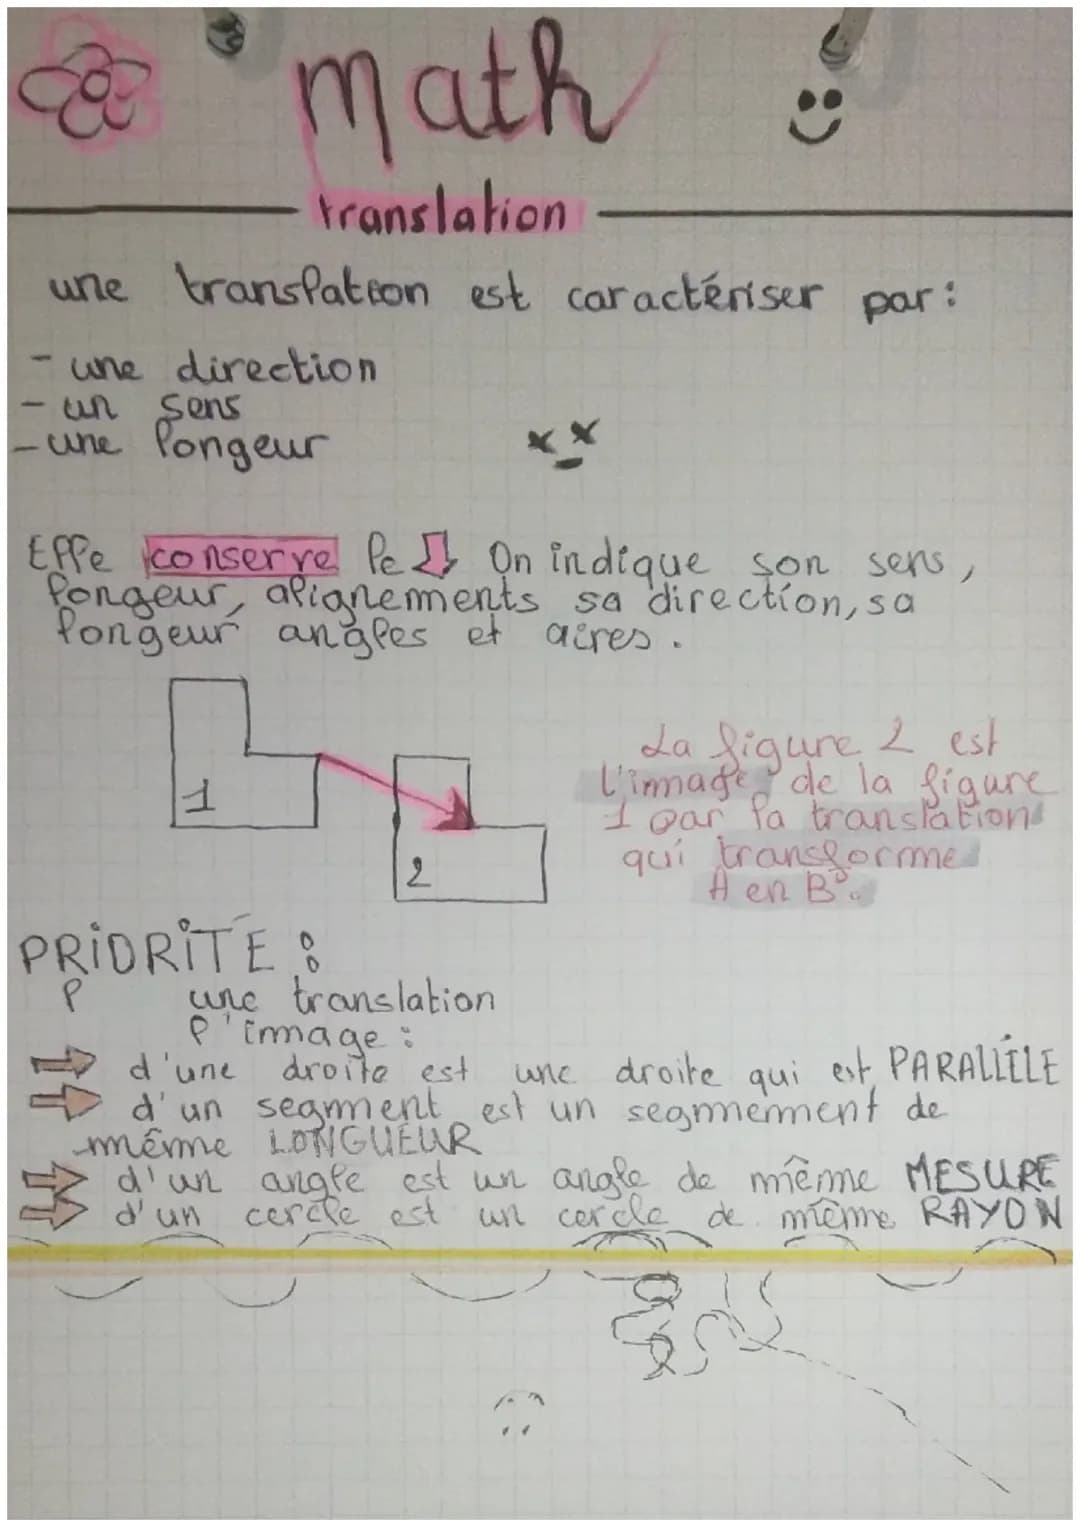 math
translation
une translation est caractériser par :
- une direction
- un sens
- une longeur
Elle conserve le On indique son sens,
longeur, alignements sa direction, sa
longeur angles et aires.
1
2
La figure 2 est
l'immage de la figure
1 par la translation
qui transforme
A en B.
PRiORiTÉ :
une translation
l'immage :
d'une droite est une droite qui est PARALLÈLE
d'un segmment est un segmmemment de
mémme LONGUEUR
d'un angle est un angle de mêmme MESURE
d'un cercle est un cercle de mêmme RAYON